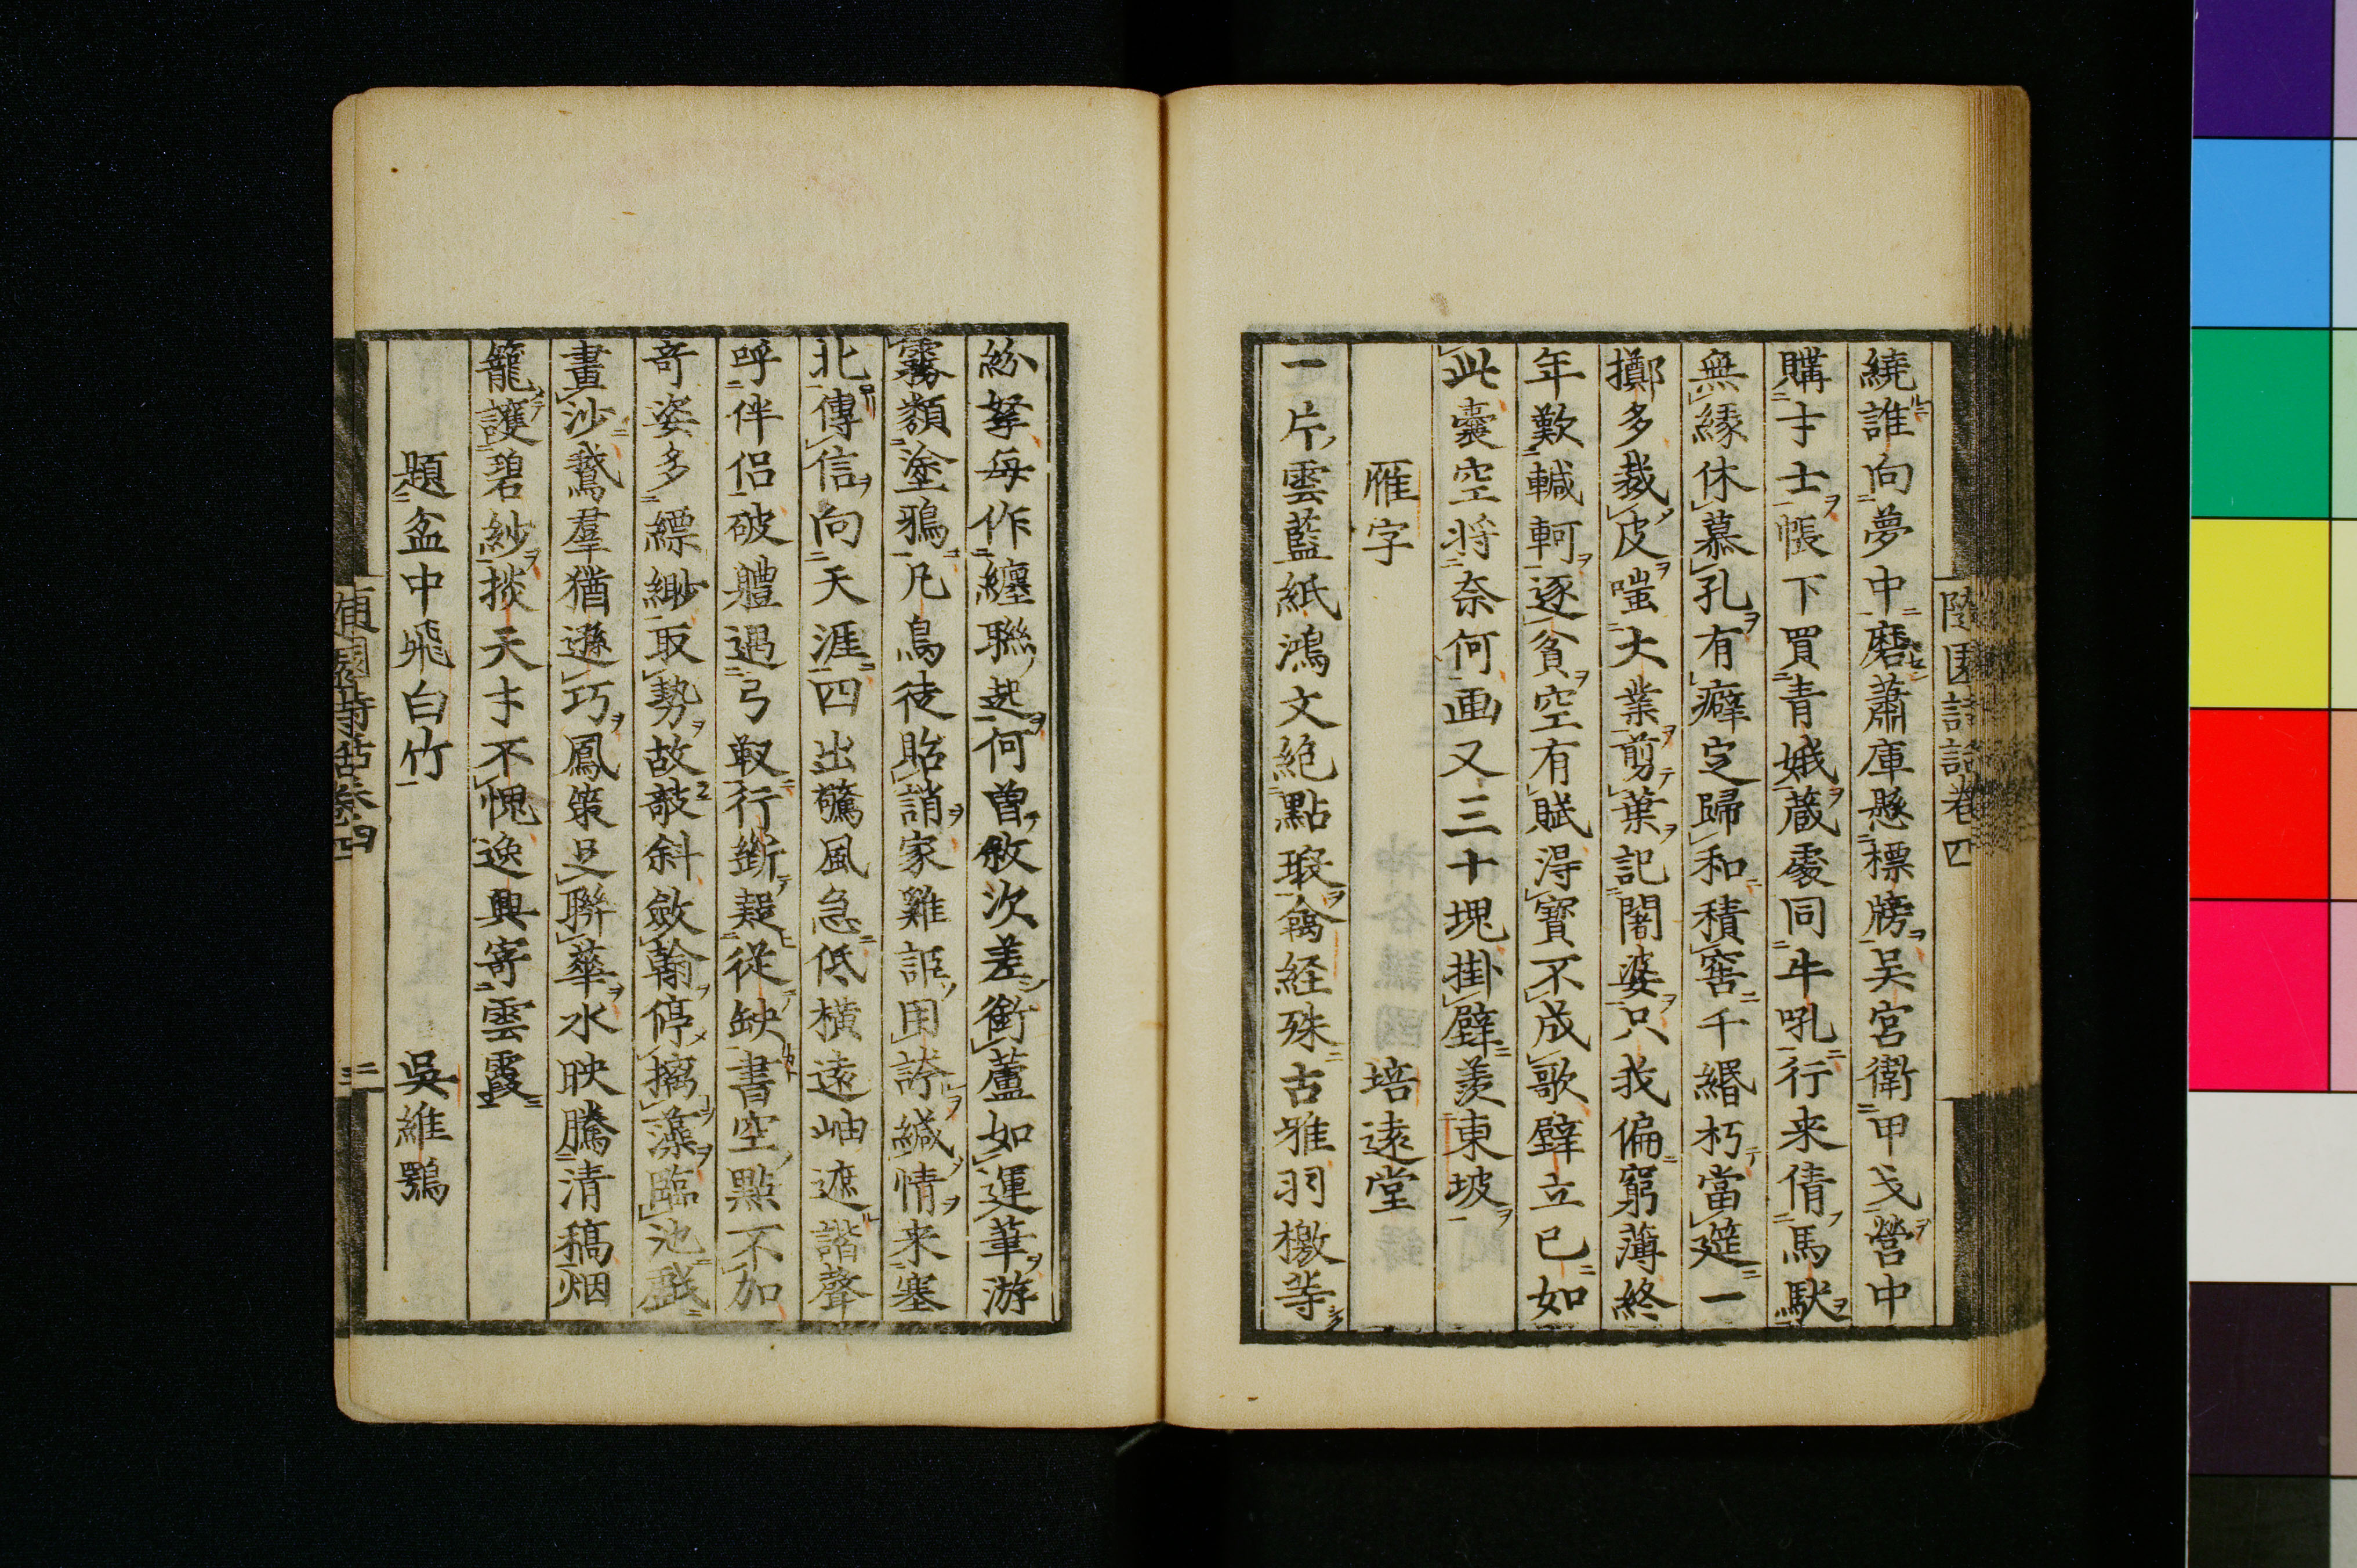 隨園詩話卷四
繞誰向夢中磨蕭庫懸標牓吴宮衛甲戈營中
購才士帳下買青娥蔵處同牛吼行来倩馬馱
無縁休慕孔有癖定歸和積窖千緡朽當筵一
擲多裁皮嗤大業剪葉記闍婆只我偏窮薄終
年歎轗軻逐貧空有賦淂寶不成歌壁立已如
此囊空将奈何画又三十塊掛壁羨東坡
雁字　培遠堂
一片雲藍紙鴻文絶點瑕禽経殊古雅羽檄等
紛拏每作纏聯起何曽敘次差銜蘆如運筆游
霧類塗鴉凡鳥徒貽誚家雞詎用誇緘情来塞
北傳信向天涯四出驚風急低橫遠岫遮諧聲
呼伴侣破軆遇弓靫行斷疑從缺書空點不加
竒姿多縹緲取勢故敧斜斂翰停摛藻臨池戲
畫沙鵞羣猶遜巧鳳策足聯華水映騰清稿烟
籠護碧紗掞天才不愧逸興寄雲霞
題盆中飛白竹　吳維鶚
隨園詩話卷四
三